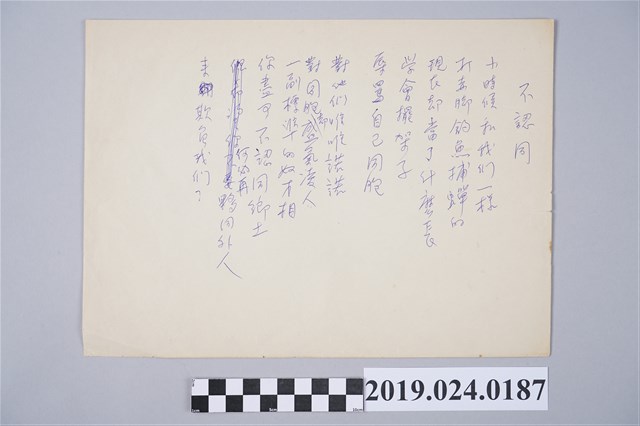 不認同
小時候和我們一樣
打赤腳釣魚捕蟬的
現在卻當了什麽長
學會擺架子
辱罵自己同胞
對他们唯唯諾諾
對同胞卻盛氣凌人
一副標準的奴才相
你盡可不認同鄉土
何必再夥同外人
來欺負我們了
2019.024.0187